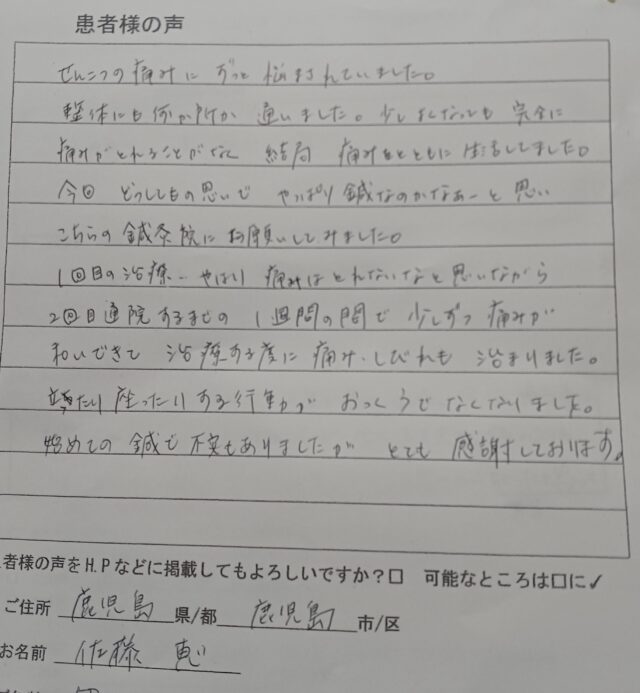 患者様の声
せんこつの痛みに ずっと 悩まされていました。
整体にも何か所か 通いました。少しよくなっても 完全に
痛みがとれることがなく 結局 痛みとともに 生活してました。
今回 どうしてもの思いで やっぱり鍼なのかなぁーと思い
こちらの鍼灸院に お願いしてみました。
1回目の治療… やはり 痛みはとれないなと思いながら
2回目通院するまでの 1週間の間で 少しずつ 痛みが
和いできて 治療する度に 痛み、しびれも 治まりました。
立ったり 座ったりする行動が おっくうでなくなりました。
始めての 鍼で 不安もありましたが とても 感謝しております。
者様の声をH.Pなどに掲載してもよろしいですか?□ 可能なところは□に✓
ご住所 鹿児島 県/都 鹿児島 市/区
お名前 佐藤 恵